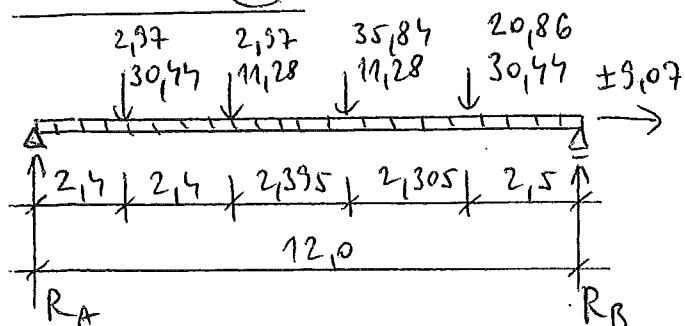 2,97 2,97 35,84 20,86
30,44 11,28 11,28 30,44 ±9,07
2,4 2,4 2,395 2,305 2,5
12,0
RA RB